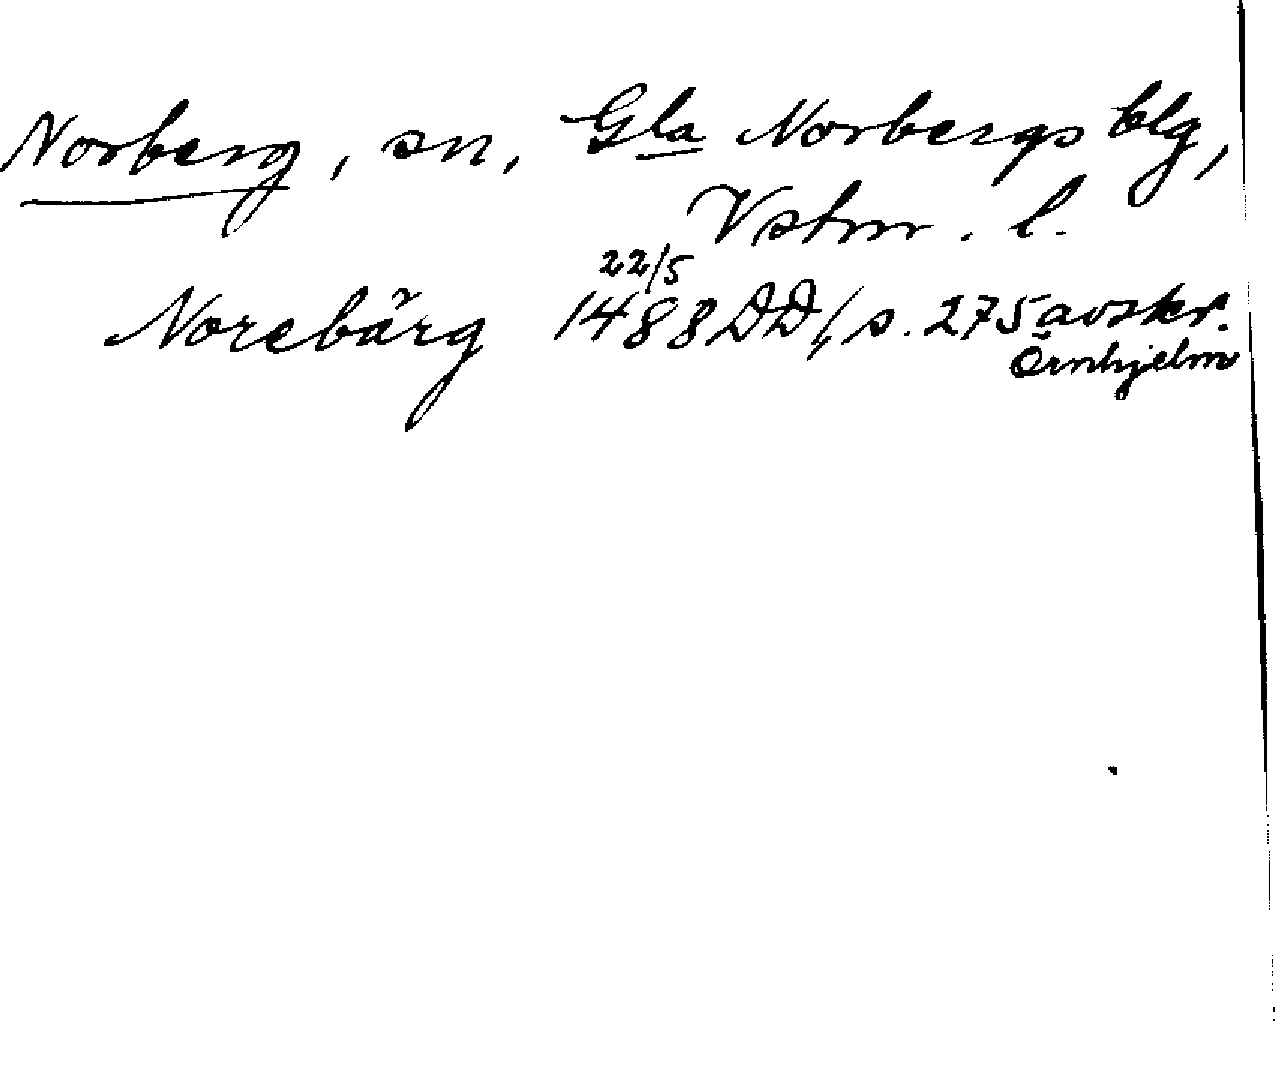 Norberg, sn, Gla Norbergs blg,
Vstm. l.
22/5
Norebärg 1488 DD1, s. 275 avskr.
Örnhjelm